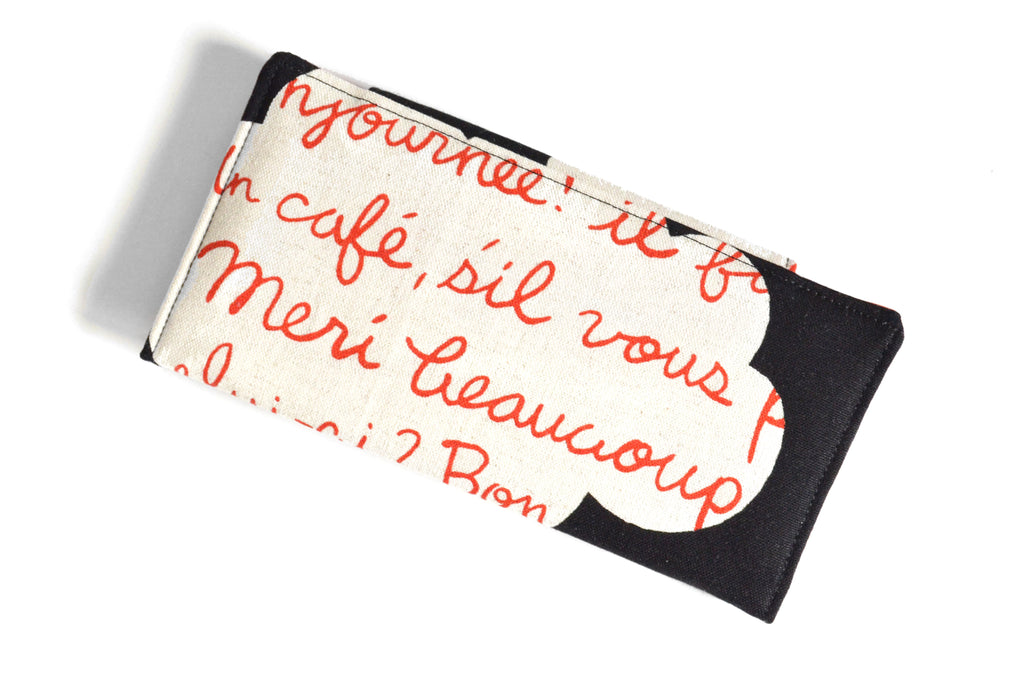 njournee! il fu
un café, s'il vous p
Meri beaucoup
lui-ci ? Bon